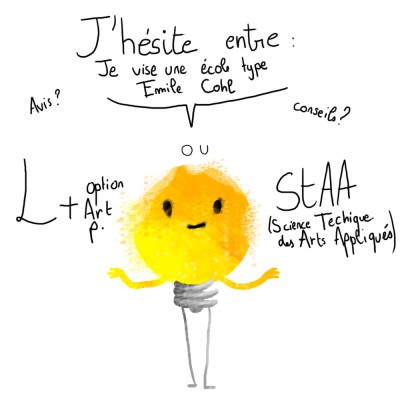 J'hésite entre :
Je vise une école type
Emile Cohl
Avis?
conseils?
OU
L + option
Art
p.
StAA
(Science Techique
des Arts Appliqués)